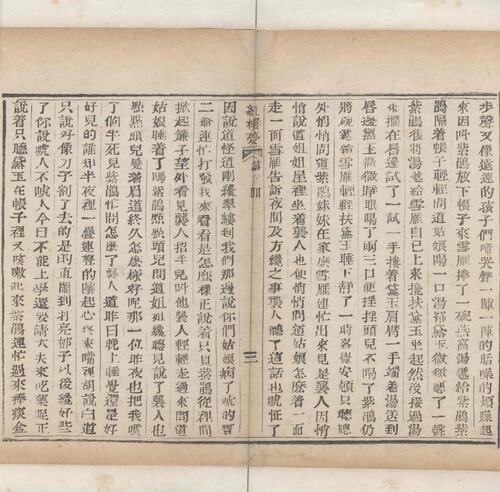 步聲又像遠遠的孩子們啼哭聲一陣一陣的聒噪的煩躁起
來因叫紫鵑放下帳子來雪雁捧了一碗燕窩湯遞給紫鵑紫
鵑隔着帳子輕輕問道姑娘喝一口湯罷黛玉微微應了一聲
紫鵑復將湯遞給雪雁自己上來攙扶黛玉坐起然後接過湯
來擱在唇邊試了一試一手摟着黛玉肩臂一手端着湯送到
唇邊黛玉微微睜眼喝了兩三口便搖搖頭兒不喝了紫鵑仍
將碗遞給雪雁輕輕扶黛玉睡下靜了一時畧覺安頓只聽窻
外悄悄問道紫鵑妹妹在家麼雪雁連忙出來見是襲人因悄
悄說道姐姐屋裡坐着襲人也便悄悄問道姑娘怎麼着一面
走一面雪雁告訴夜間及方纔之事襲人聽了這話也唬怔了
紅樓夢 第 回 三
因說道怪道剛纔翠縷到我們那邊說你們姑娘病了唬的寶
二爺連忙打發我來看看是怎麼樣正說着只見紫鵑從裡間
掀起簾子望外看見襲人招手兒叫他襲人輕輕走過來問道
姑娘睡着了嗎紫鵑點點頭兒問道姐姐纔聽見說了襲人也
點點頭兒蹙着眉道終久怎麼樣好呢那一位昨夜也把我唬
了個半死兒紫鵑忙問怎麼了襲人道昨日晚上睡覺還是好
好兒的誰知半夜裡一疊連聲的嚷起心疼來嘴裡胡說白道
只說好像刀子割了去的是的直鬧到打亮梆子以後纔好些
了你說唬人不唬人今日不能上學還要請大夫來吃藥呢正
說着只聽黛玉在帳子裡又咳嗽起來紫鵑連忙過來捧痰盒